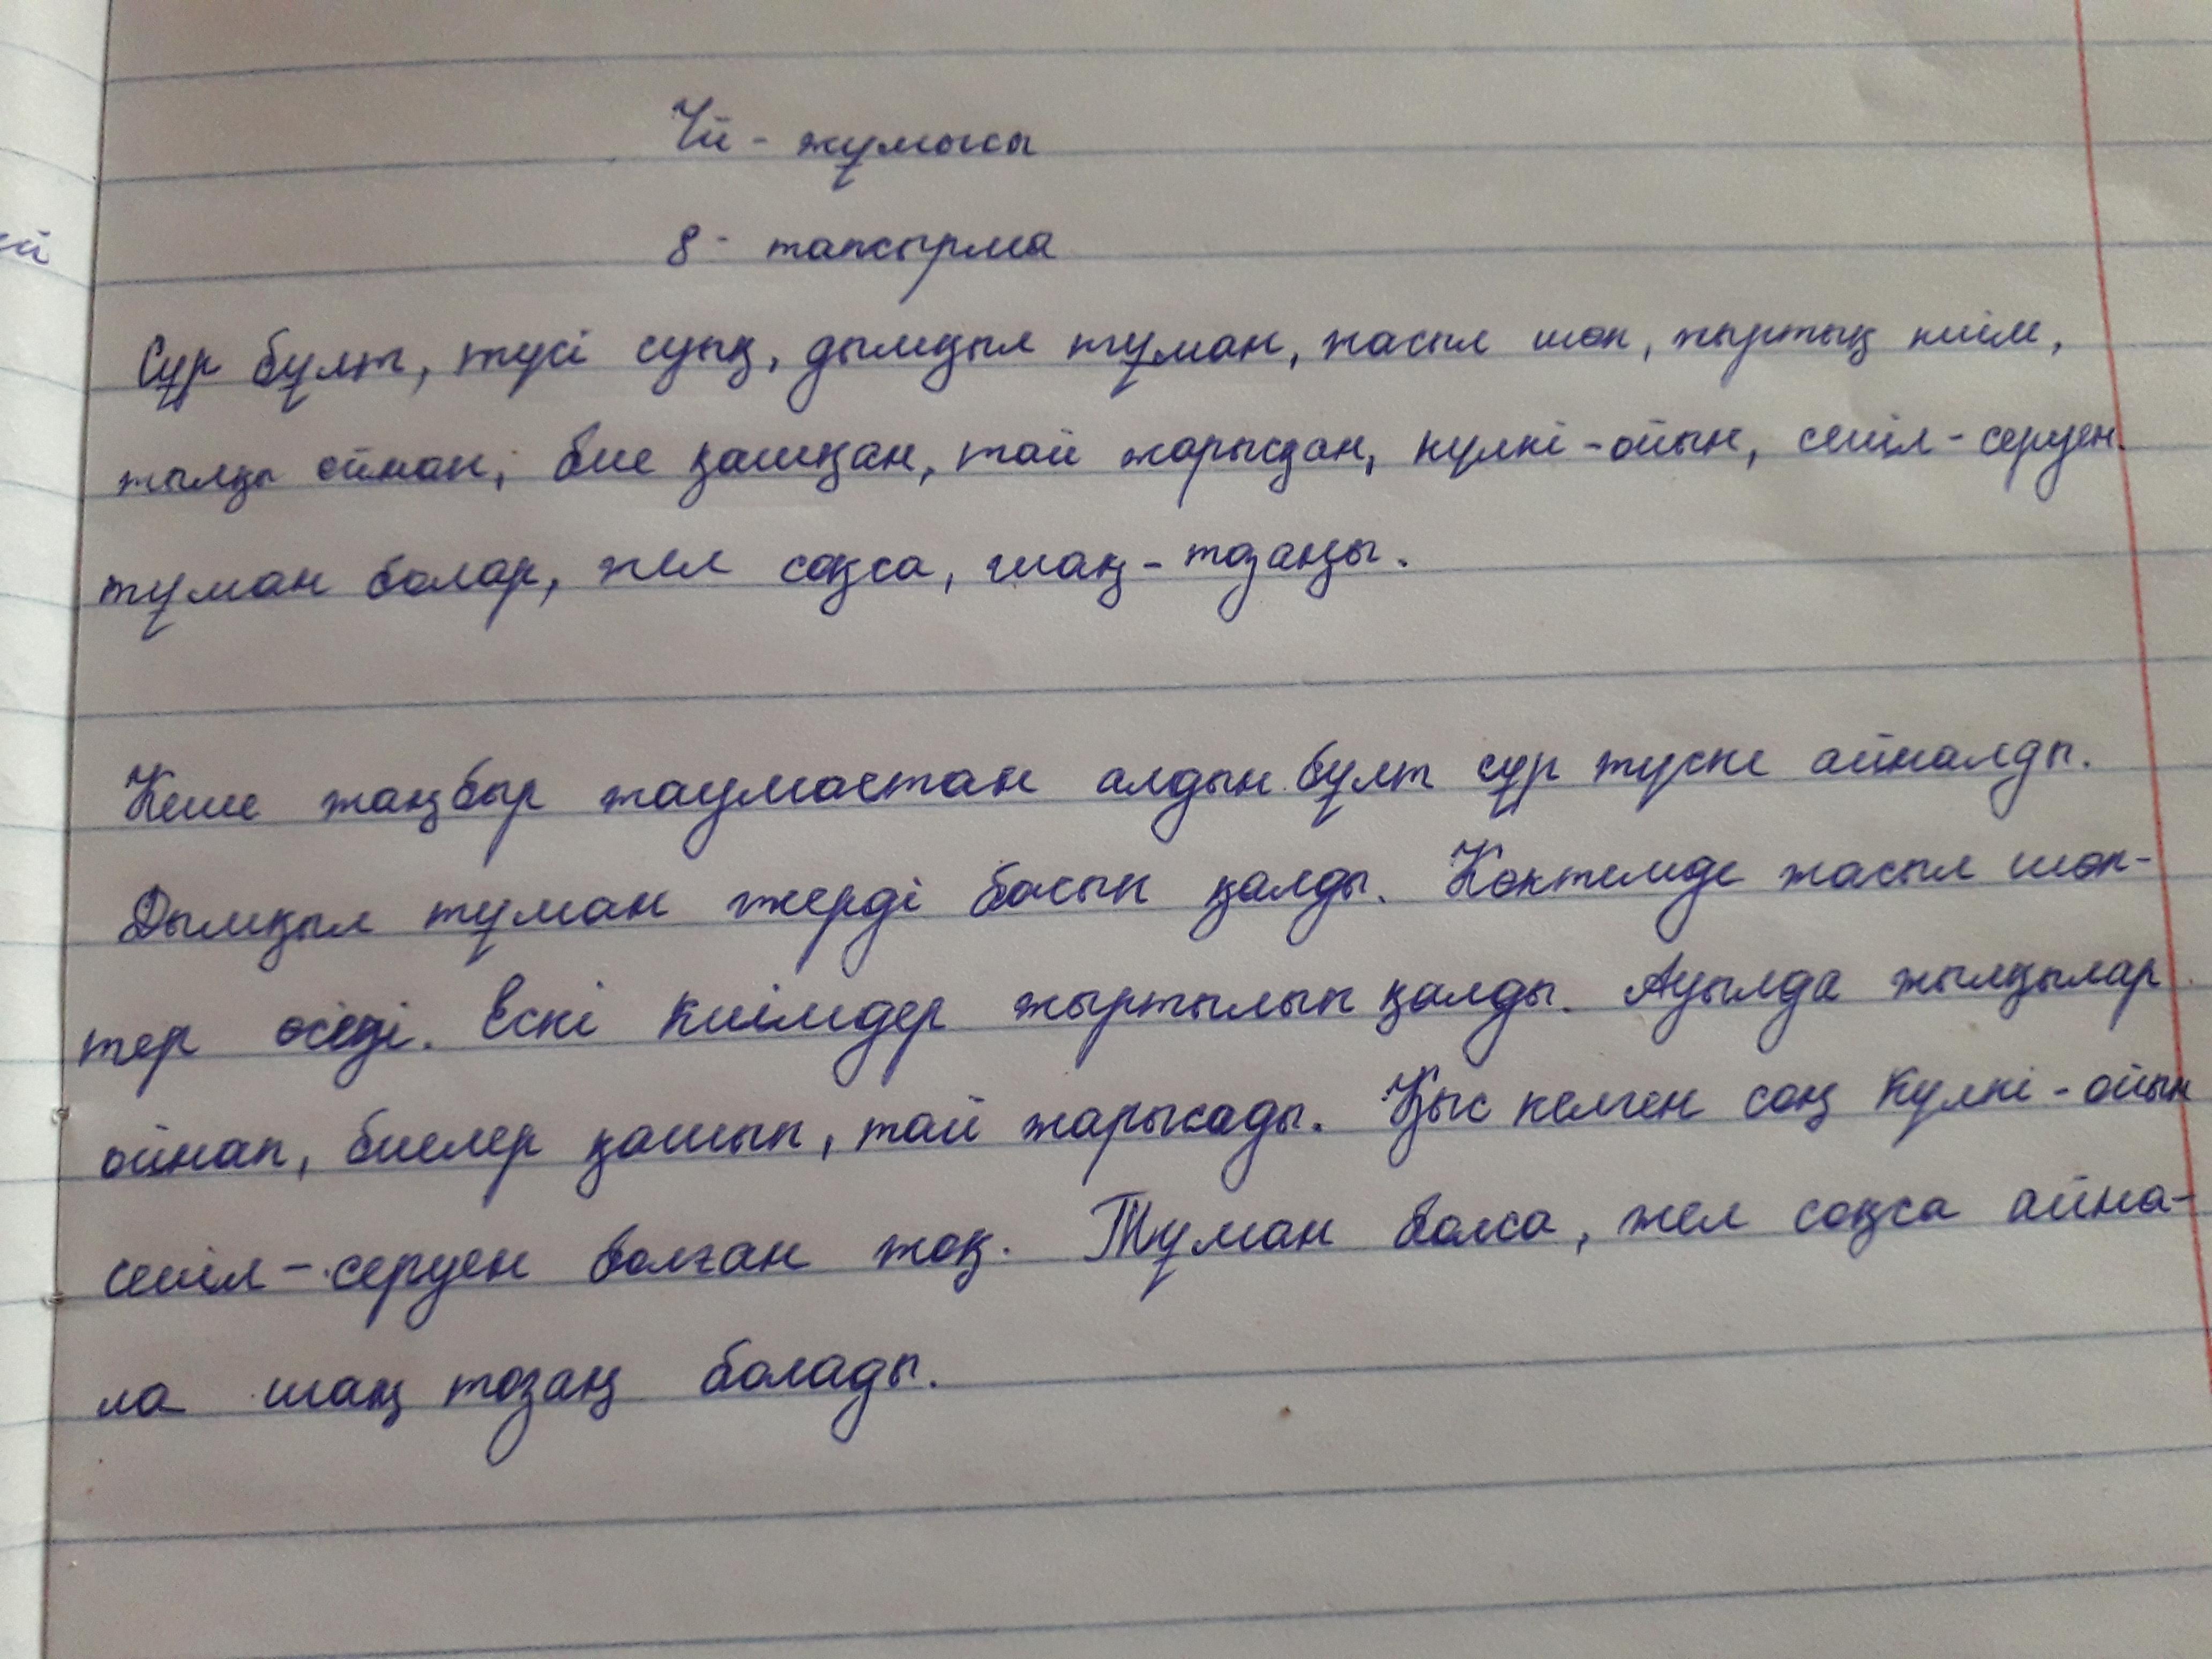 Үй - жұмысы
8 - тапсырма
Сұр бұлт, түсі суық, дымқыл тұман, жасыл шөп, жыртық киім,
жылқы ойнап, бие қашқан, тай жарысқан, күлкі - ойын, сейіл - серуен.
тұман болар, жел соқса, шаң - тозаңы.
Кеше жаңбыр жаумастан алдын бұлт сұр түске айналды.
Дымқыл тұман жерді басып қалды. Көктемде жасыл шөп-
тер өседі. Ескі киімдер жыртылып қалды. Ауылда жылқылар
ойнап, биелер қашып, тай жарысады. Қыс келген соң күлкі - ойын
сейіл - серуен болған жоқ. Тұман болса, жел соқса айна-
ла шаң тозаң болады.